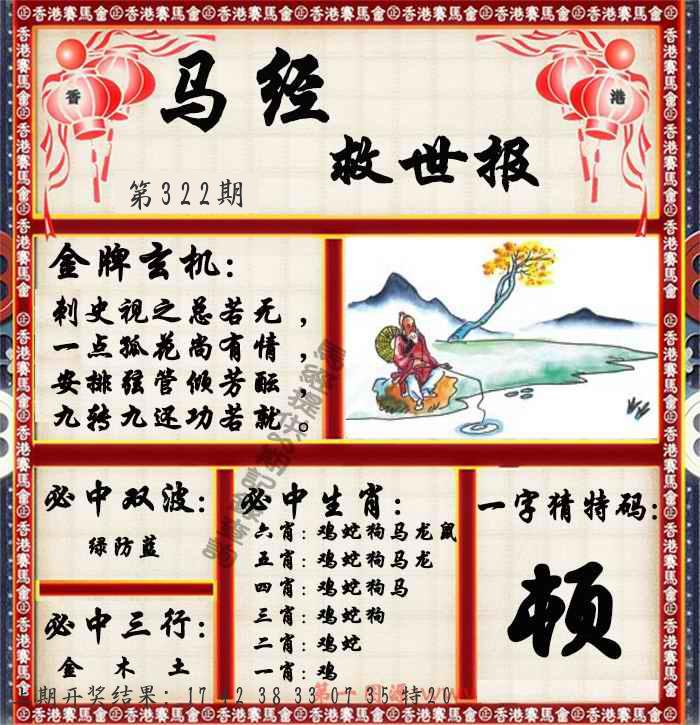 香港賽馬會
香 港
马经
救世报
第322期
金牌玄机:
刺史视之总若无，
一点孤花尚有情，
安排弦管倾芳酝，
九转九还功若就。
必中双波:
绿防蓝
必中三行:
金 木 土
必中生肖:
六肖: 鸡蛇狗马龙鼠
五肖: 鸡蛇狗马龙
四肖: 鸡蛇狗马
三肖: 鸡蛇狗
二肖: 鸡蛇
一肖: 鸡
一字猜特码:
顿
期开奖结果: 17 42 38 33 07 35 特20